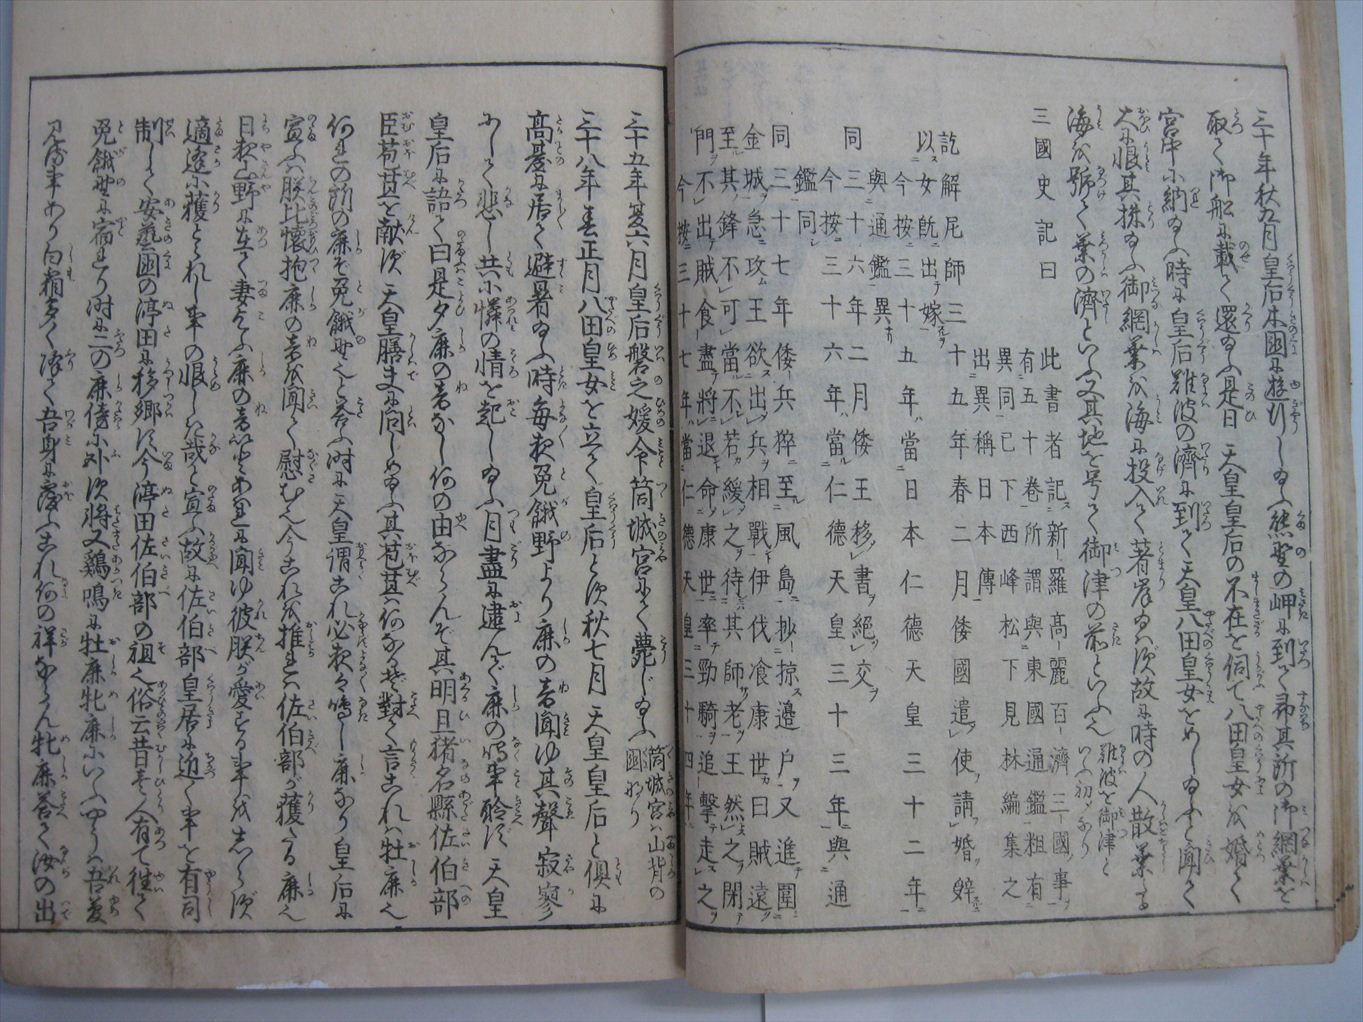 三十年秋九月皇后木國に遊行しゐふ熊野の岬に到て即其所の御綱葉を
取く御船に載く還ゐふ是日 天皇皇后の不在を伺て八田皇女を婚しく
宮中に納ゐふ時に皇后難波の濟に到て天皇八田皇女をめしゐふと聞く
大に恨其採ゐふ御綱葉を海に投入く著岸ゐはず故に時の人散葉しる
海を号く葉の濟といふ又其地を号く御津の前といふ 難波を御津と
いへる初なり
三國史記曰
此書者記新羅高麗百濟三國事
有五十卷所謂與東國通鑑粗有
異同已下西峰松下見林編集之
出異稱日本傳
訖解尼師三十五年春二月倭國遣使請婚辤
以女既出嫁
今按三十五年當日本仁德天皇三十二年
與通鑑異
同三十六年二月倭王移書絕交
今按三十六年當仁德天皇三十三年與通
鑑同
同三十七年倭兵猝至風島抄掠邊戸又進圍
金城急攻王欲出兵相戰伊伐飡康世曰賊遠
至其鋒不可當不若緩之待其師老王然之閉
門不出賊食盡將退命康世率勁騎追擊走之
今按三十七年當仁德天皇三十四年
三十五年夏六月皇后磐之媛令筒城宮にく薨じゐふ 筒城宮は山背の
國なり
三十八年春正月八田皇女を立く皇后とす秋七月 天皇皇后と倶に
高臺に居く避暑ゐふ時毎夜菟餓野より鹿の音聞ゆ其聲寂寥
にして悲し共に憐の情を起しゐふ月盡に逮んで鹿の鳴事聆ず天皇
皇后に語く曰是夕鹿の音なし何の由ならんぞ其明旦猪名縣佐伯部
臣苞苴を献ず 天皇膳夫に問しめゐふ其苞苴は何なるぞ對く言これは牡鹿也
何れの所の鹿ぞ菟餓野と答ふ時に天皇謂これ必夜々鳴し鹿なり皇后に
宣ふ朕比懷抱鹿の音を聞く慰む今これを推れば佐伯部が獲たる鹿也
日夜山野に在て妻乞ふ鹿の音に聞ゆ彼朕が愛する事をしらず
適逢に獲とられし事の恨しき哉と宣ふ故に佐伯部皇居に近く事を有司
制しく安藝國の渟田に移郷す今渟田佐伯部の祖也俗云昔一人有て徃く
菟餓野に宿れり時に二の鹿傍に卧す將又鷄鳴に牡鹿牝鹿にいふやうは吾夢
見る事あり白霜多く降く吾身に覆ふこれ何の祥ならん牝鹿答く汝の出